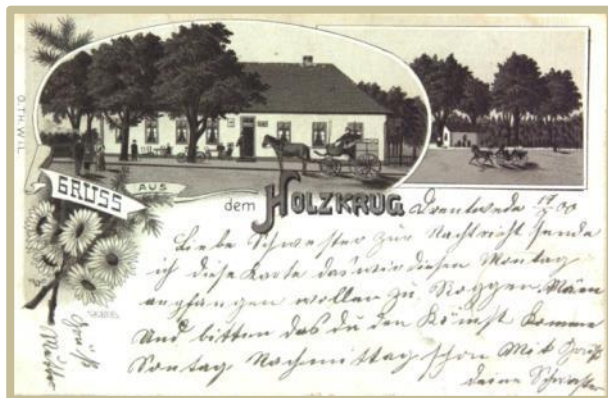 O.TH.W.I.L.
GRUSS
AUS
dem HOLZKRUG
Drentwede 00
Liebe Schwester zur Nachricht sende
ich diese Karte das wir diesen Montag
anfangen wollen zu Roggen Mäen
Und bitten das du den kommen
Sontag Nachmittag schon Mit Gruß
deine Schwester
Gruß
Mutter